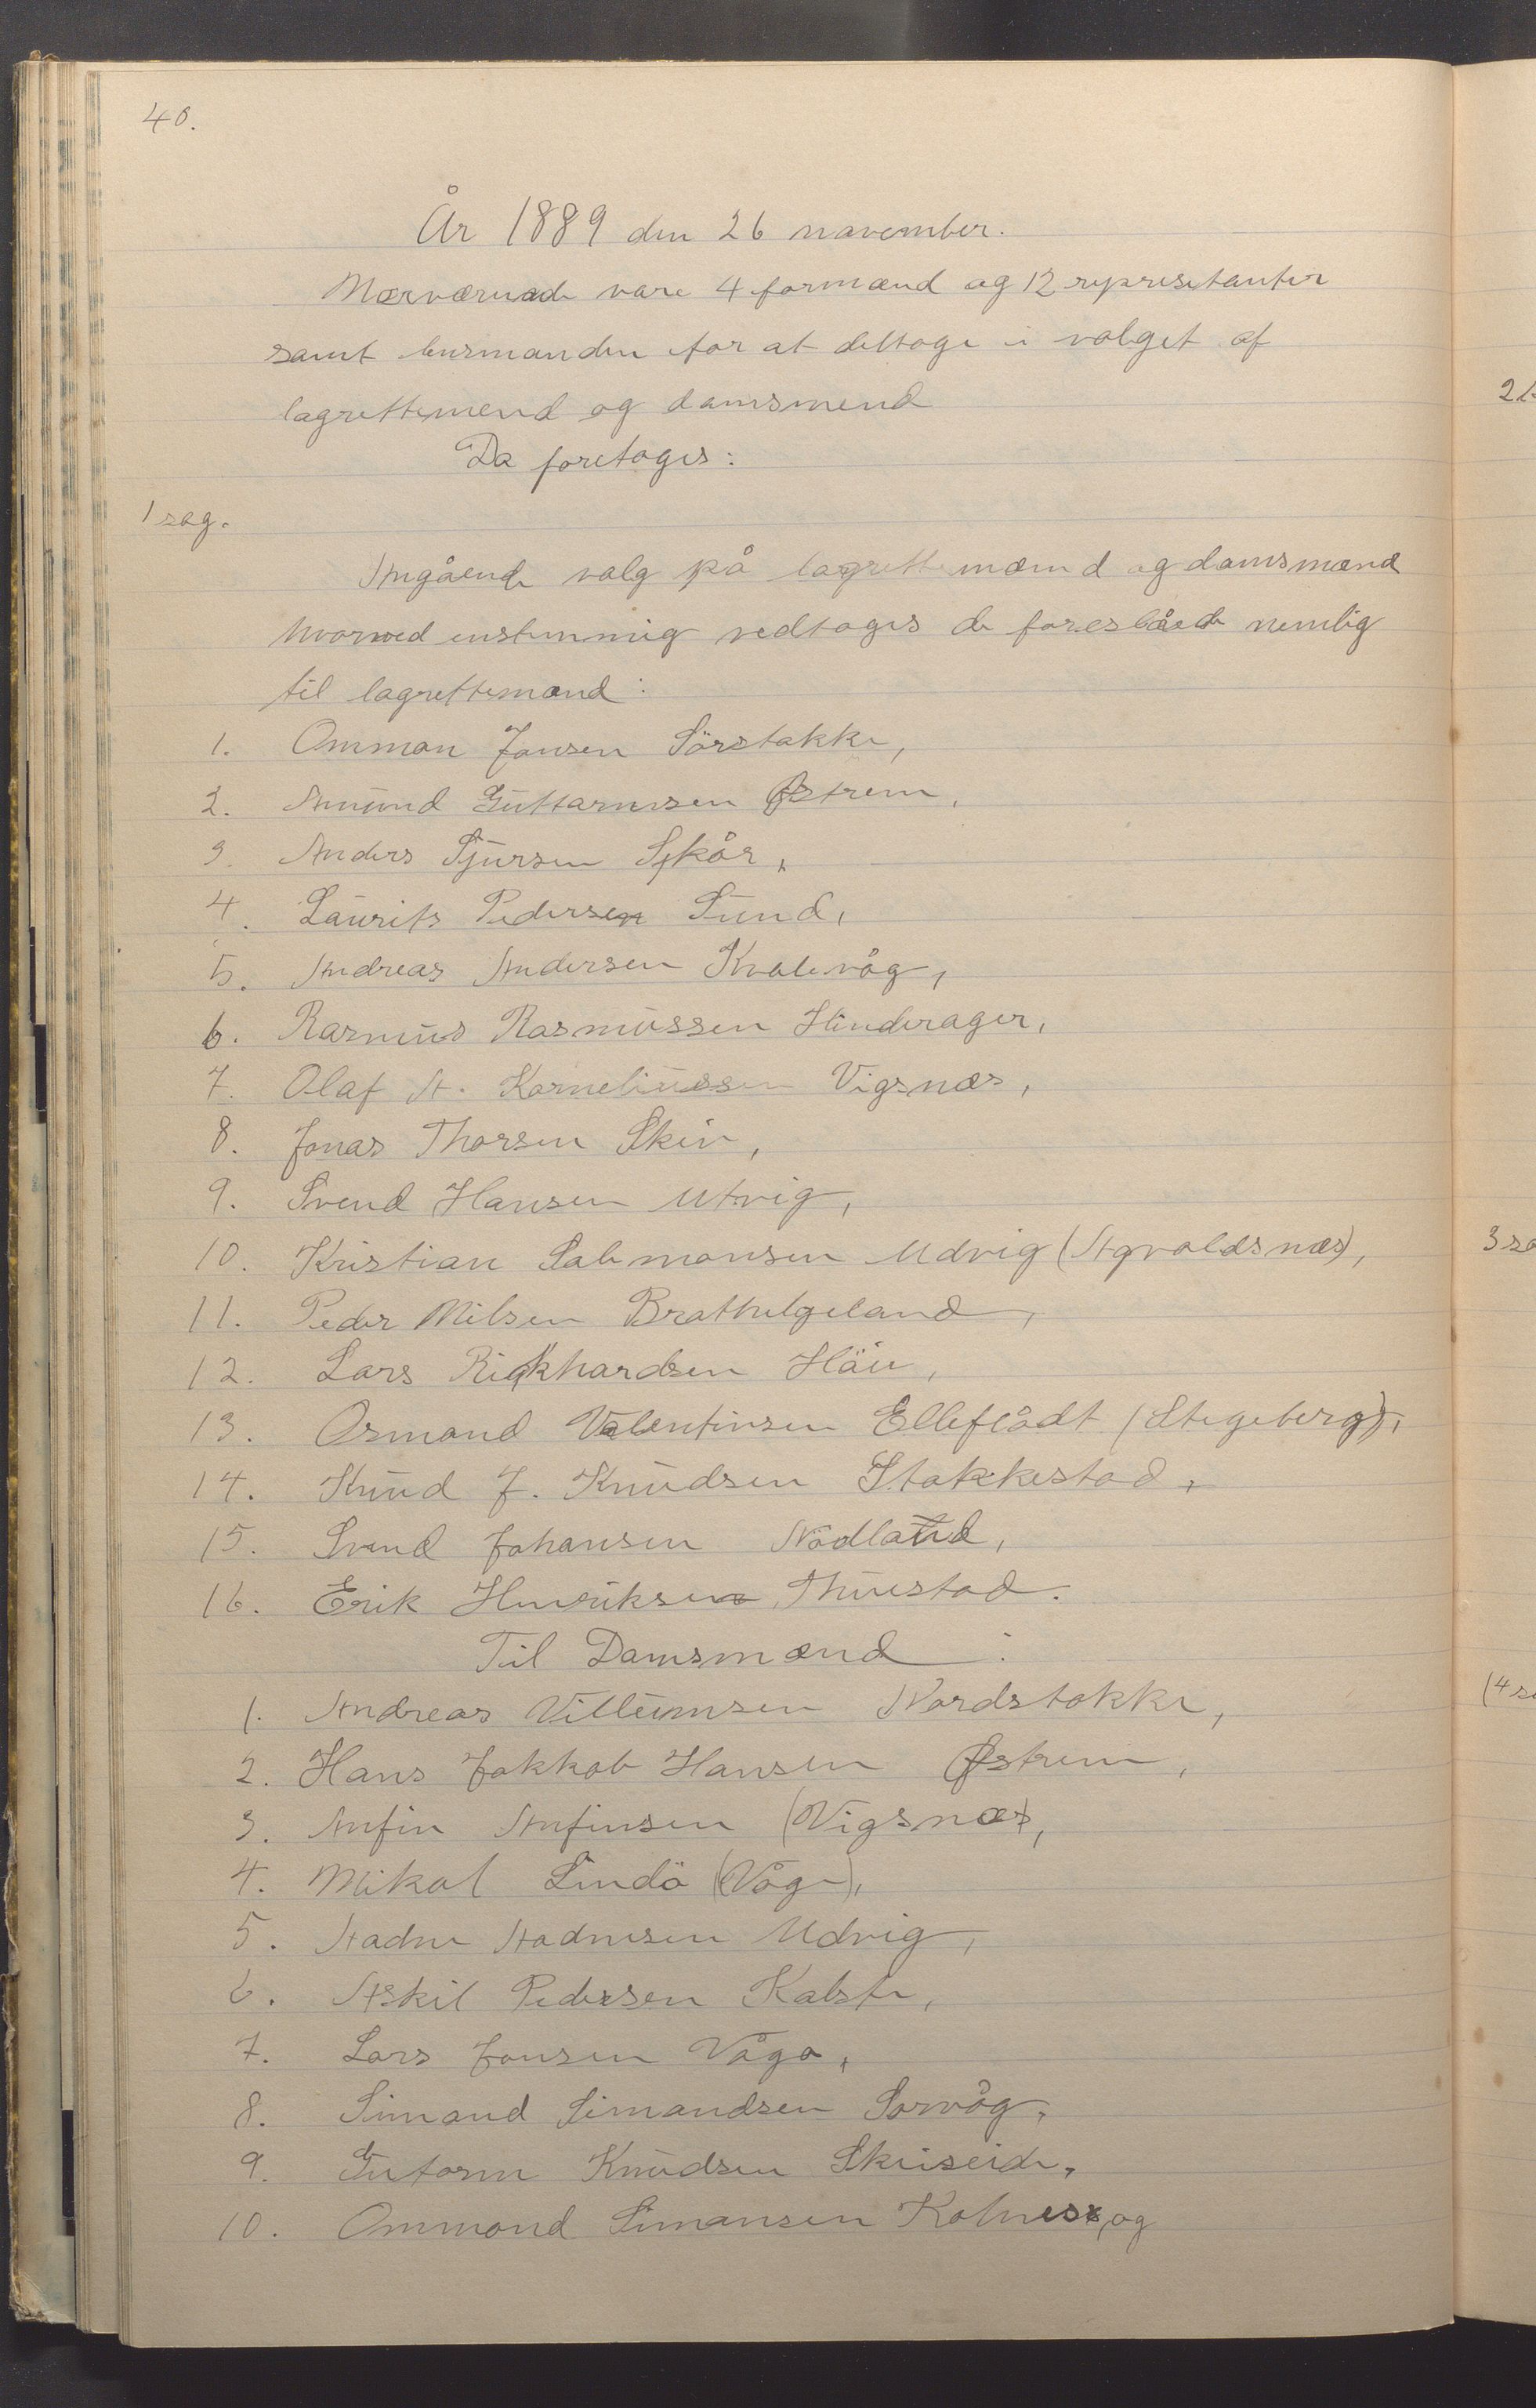 40.
År 1889 den 26 november.
Nærværende vare 4 formænd og 12 represetanter
samt lensmanden for at deltage i valget af
lagrettemend og domsmend
Da foretoges:
1 sag.
Angående valg på lagrettemænd og domsmænd
hvorved enstemmig vedtoges de foreslåede nemlig
til lagrettemænd:
1. Omman Jansen Sörstokke,
2. Amund Guttormsen Østrem,
3. Anders Sjursen Skår,
4. Laurits Pedersen Sund,
5. Andreas Andersen Kvalevåg,
6. Rasmus Rasmussen Hinderager,
7. Olaf A. Korneliussen Vigsnæs,
8. Jonas Thorsen Skein,
9. Svend Hansen Utvig,
10. Kristian Salmonsen Udvig (Agvoldsnæs),
11. Peder Nilsen Brathelgeland,
12. Lars Rickhardsen Håu,
13. Osmond Valentinsen Elleflådt (Stegeberg),
14. Knud J. Knudsen Stokkestad,
15. Svend Johansen Nödland,
16. Erik Henriksen Thuestad.
Til Domsmænd:
1. Andreas Villumsen Nordstokke,
2. Hans Jakkob Hansen Østrem,
3. Anfin Anfinsen (Vigsnæs),
4. Mikal Lindö (Våge),
5. Aadne Aadnesen Udvig,
6. Askil Pedersen Kalstø,
7. Lars Jonsen Våga,
8. Simond Simondsen Sørvåg,
9. Gutorm Knudsen Skeiseide,
10. Ommond Simonsen Kolnes, og
2
3 sa
4 sa